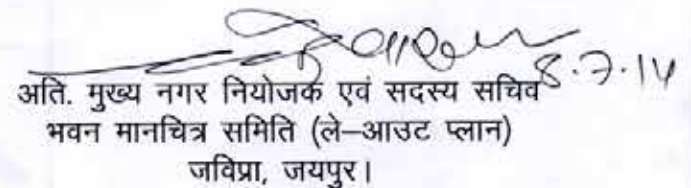 8.7.14
अति. मुख्य नगर नियोजक एवं सदस्य सचिव
भवन मानचित्र समिति (ले–आउट प्लान)
जविप्रा, जयपुर।